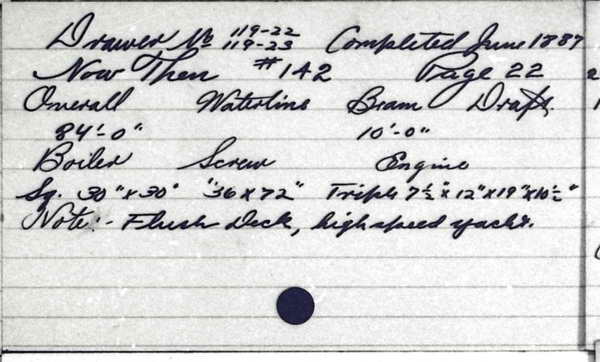 Drawer No 119-22
119-23 Completed June 1887
Now Then #142 Page 22
Overall Waterline Beam Draft
84'-0" 10'-0"
Boiler Screw Engine
Sq. 30"x30" "36x72" Triple 7½"x12"x19"x10½"
Note:- Flush Deck, high speed yacht.